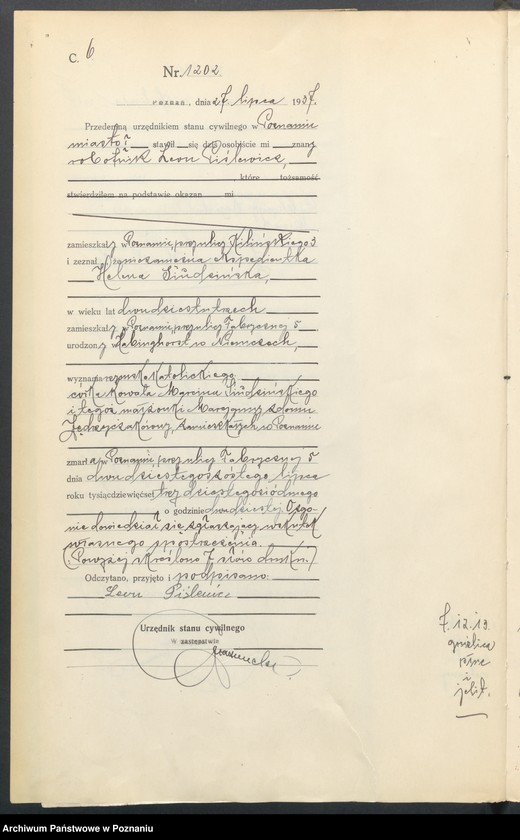 C. 6
Nr. 1202.
Poznań, dnia 27 lipca 1937.
Przedemną urzędnikiem stanu cywilnego w Poznaniu
miasto stawił się dziś osobiście mi znany
robotnik Leon Piślewicz,
które tożsamość
stwierdziłem na podstawie okazan mi
zamieszkały w Poznaniu, przy ulicy Kilińskiego 3
i zeznał, że niezamężna ekspedientka
Helena Siudzińska,
w wieku lat dwudziestutrzech
zamieszkała w Poznaniu, przy ulicy Fabrycznej 5
urodzona w Habinghorst w Niemczech,
wyznania rzymskokatolickiego
córka kowala Marcina Siudzińskiego
i tegoż małżonki Marcyanny z domu
zamieszkałych w Poznaniu
zmarła w Poznaniu, przy ulicy Fabrycznej 5
dnia dwudziestegoszóstego lipca
roku tysiącdziewięćset trzydziestegosiódmego
o godzinie dwudziestej. O zgo-
nie dowiedział się zgłaszający wskutek
własnego spostrzeżenia.
/Powyżej skreślono 7 słów drukn./
Odczytano, przyjęto i podpisano:
Leon Piślewicz
Urzędnik stanu cywilnego
W zastępstwie
7. 12. 13.
gruźlica
płuc
i
jelit.
Archiwum Państwowe w Poznaniu